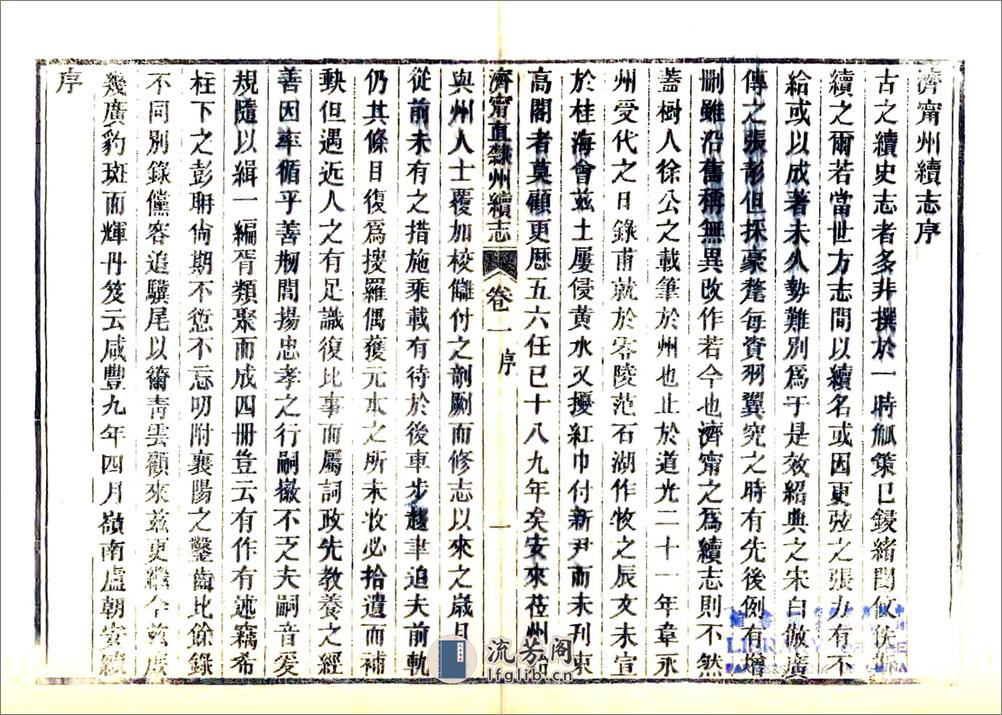 濟甯州續志序
古之續史志者多非撰於一時觚策已鏝緒閒
續之爾若當世方志間以續名或因更弦之張力有不
給或以成著未久勢難別爲于是效紹典之宋白倣廣
傳之張彭但採豪釐每資羽翼究之時有先後例有增
刪雖沿舊稱無異改作若今也濟甯之爲續志則不然
蓋樹人徐公之載筆於州也止於道光二十一年章永
州受代之日錄甫就於零陵范石湖作牧之辰文未宣
於桂海會兹土屢侵黃水又擾紅巾付新尹而未刊束
高閣者莫顧更歷五六任已十八九年矣安來莅州
濟甯直隸州續志 卷一 序 一
與州人士覆加校讎付之剞劂而修志以來之歲月
從前未有之措施乘載有待於後車步趨聿追夫前軌
仍其條目復爲搜羅偶獲元本之所未收必拾遺而補
缺但遇近人之有足識復比事而屬詞政先教養之經
善因率循乎善剏閭揚忠孝之行嗣徽不乏夫嗣音爰
規隨以緝一編胥類聚而成四冊豈云有作有述竊希
柱下之彭聃尙期不愆不忘明附襄陽之鑿齒比餘錄
不同別錄儻容追驥尾以衢靑雲顧來兹更繼今
幾廣豹斑而輝丹笈云咸豐九年四月嶺南盧朝安續
序
流芳阁
lfglib.cn
LIBRARY